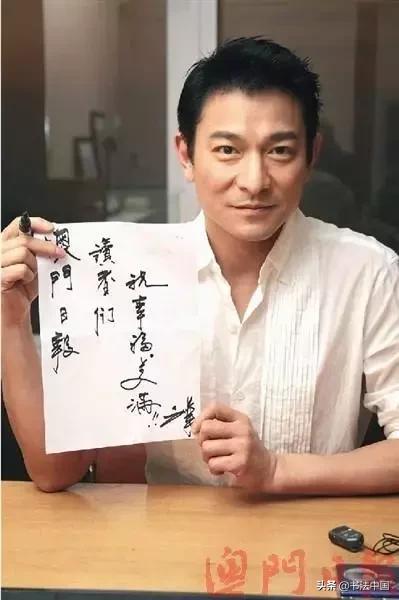 澳門日報
讀者們
祝幸福美滿!!
澳門日報
头条 @书法中国